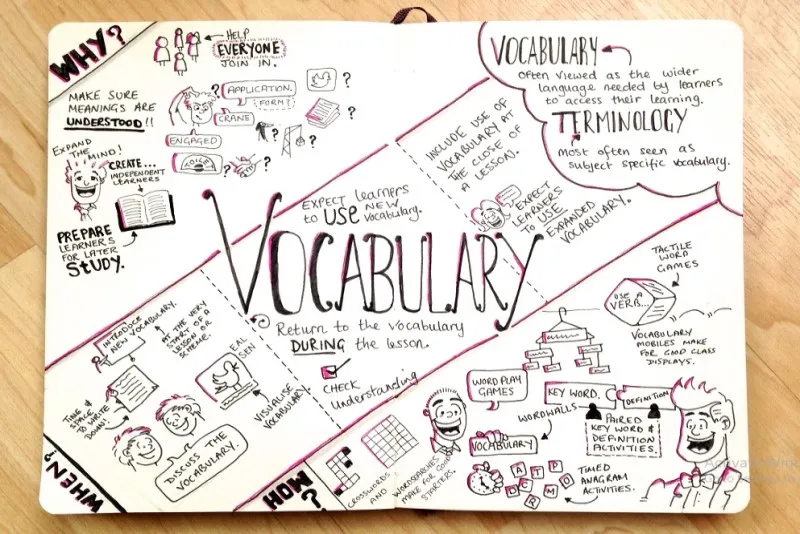 WHY?
HELP
EVERYONE
JOIN IN.
MAKE SURE
MEANINGS ARE
UNDERSTOOD!!
?
APPLICATION.
FORM?
CRANE
ENGAGED
TOILET
?
?
?
?
?
EXPAND
THE MIND!
CREATE...
INDEPENDENT
LEARNERS
PREPARE
LEARNERS
FOR LATER
STUDY.
VOCABULARY
Often viewed as the wider
language needed by learners
to access their learning.
TERMINOLOGY
Most often seen as
subject specific vocabulary.
INCLUDE USE OF
VOCABULARY AT
THE CLOSE OF
A LESSON.
EXPECT
LEARNERS
TO USE
EXPANDED
VOCABULARY.
EXPECT learners
to USE NEW
vocabulary.
VOCABULARY
Return to the vocabulary
DURING the lesson.
CHECK
Understanding
WHEN?
INTRODUCE
NEW VOCABULARY.
AT THE VERY
START OF A
LESSON OR
SCHEME.
TIME &
SPACE
TO WRITE
DOWN!
EAL
SEN
VISUALISE
VOCABULARY
DISCUSS THE
VOCABULARY.
HOW?
CROSSWORDS
AND
WORDSEARCHES
MAKE FOR GOOD
STARTERS.
TACTILE
WORD
GAMES
USE A
VERB...
VOCABULARY
MOBILES MAKE
FOR GOOD CLASS
DISPLAYS.
WORD PLAY
GAMES
KEY WORD.
DEFINITION
WORDWALLS
VOCABULARY
PAIRED
KEY WORD &
DEFINITION
ACTIVITIES.
A T P
D C R M O
TIMED
ANAGRAM
ACTIVITIES.